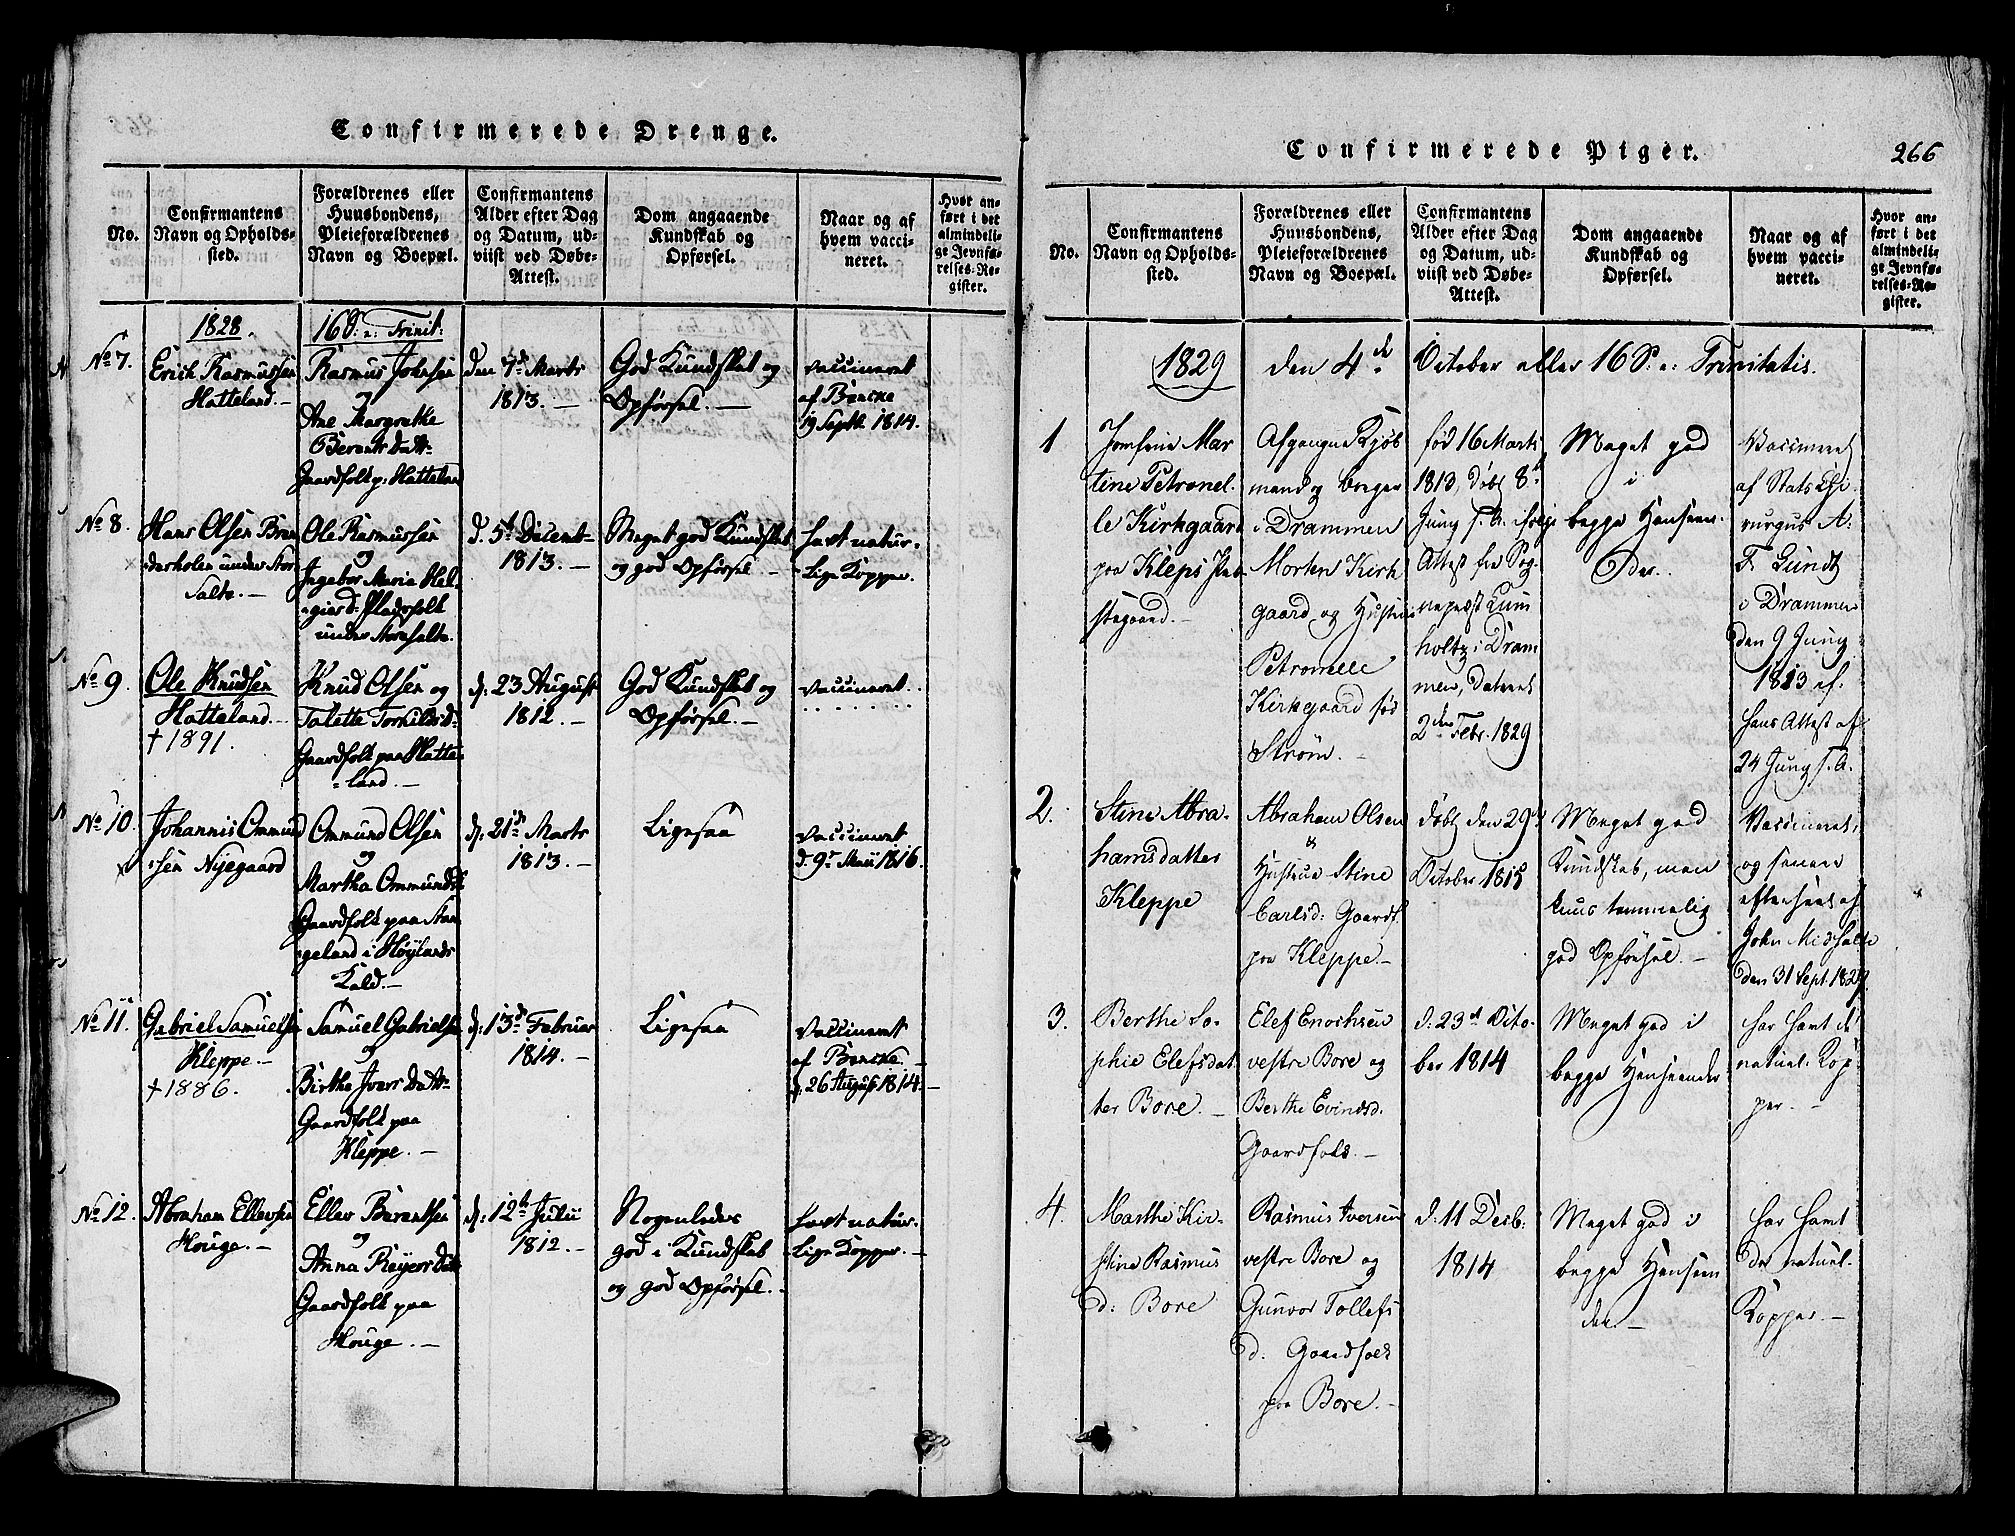 Confirmerede Drenge.
No.
Confirmantens
Navn og Opholds-
sted.
Forældrenes eller
Huusbondens,
Pleieforældrenes
Navn og Boepæl.
Confirmantens
Alder efter Dag
og Datum, ud-
viist ved Døbe-
Attest.
Dom angaaende
Kundskab og
Opførsel.
Naar og af
hvem vacci-
neret.
Hvor an-
ført i det
almindeli-
ge Jevnfø-
relses-Re-
gister.
1828.
16 S: a: Trinit:
No 7.
Erich Rasmussen
Hatteland.-
Rasmus Johnsen
og
Ane Margrethe
Berentsdatt-
Gaardfolk p: Hatteland
Den 7de Marts
1813.-
God Kundskab og
Opførsel.-
vaccineret
af Bencke
19 Septb 1814.
No 8.
Hans Olsen Bren
derholen under Stor
Salte.-
Ole Rasmussen
og
Ingebor Maria Hel
giesd: Pladsfolk
under Storsalte.
d. 5t Decemt-
1813.-
Meget god Kundskab
og god Opførsel.-
havt natur-
lige Kopper.
No 9.
Ole Knudsen
Hatteland.-
† 1891.
Knud Olsen og
Talette Torkildsd-
Gaardfolk paa Hatte-
land.-
d: 23 August
1812.-
God Kundskab og
Opførsel.-
vaccineret..
No 10.
Johannis Ommund
sen Nyegaard
Ommund Olsen
og
Martha Ommundsd
Gaardfolk paa Stan
geland i Høylands
Kald.-
d: 21de Marts
1813.-
Ligesaa
vaccineret
d. 9de Maii 1816.
No 11.
Gabriel Samuelsen
Kleppe.-
† 1886.
Samuel Gabrielsen
og
Birthe Iversdatt-
Gaardfolk paa
Kleppe.-
d: 13de Februar
1814.-
Ligesaa
vaccineret
af Bencke
d: 26 August 1814.-
No 12.
Abraham Ellevsen
Houge.-
Ellev Berentsen
og
Anna Reyersdatt
Gaardfolk paa
Houge.-
d: 12te Julii
1812.-
Nogenledes
god i Kundskab
og god Opførsel.
havt natur-
lige Kopper.-
Confirmerede Piger.
266
No.
Confirmantens
Navn og Opholds-
sted.
Forældrenes eller
Huusbondens,
Pleieforældrenes
Navn og Boepæl.
Confirmantens
Alder efter Dag
og Datum, ud-
viist ved Døbe-
Attest.
Dom angaaende
Kundskab og
Opførsel.
Naar og af
hvem vacci-
neret.
Hvor an-
ført i det
almindeli-
ge Jevnfø-
relses-Re-
gister.
1829 den 4de October eller 16 S: a: Trinitatis.
1
Jomfrue Mar
tine Petronel
le Kirkgaard
paa Kleps Præ
stegaard.-
Afgangne Kjøb
mand og borger
i Drammen
Morten Kirk
gaard og Hustrue
Petronelle
Kirkgaard fød
Strøm.-
fød 16 Marts
1813, døbt 8de
Juny s. A. ifølge
Attest fra Sog
nepræst Lum
holtz i Dram
men, dateret
2den Febr. 1829
Meget god
i
begge Henseen
der.
Vaccineret
af Stats Chi
rurgus A.
F. Lundt
i Drammen
den 9 Juny
1813 ef.
hans Attest af
24 Juny s. A.
2.
Stine Abra-
hamsdatter
Kleppe
Abraham Olsen
&
Hustrue Stine
Carlsd: Gaardf.
paa Kleppe.-
døbt den 29de
October 1815
Meget god
Kundskab, men
kuns temmelig
god Opførsel.-
Vaccineret,
og senere
efterseet af
John Midsalte
den 31 Sept. 1829.
3.
Berthe So-
phie Elefsdat
ter Bore.-
Elef Enochsen
vestre Bore og
Berthe Evindsd.
Gaardfolk.-
d: 23de Octo-
ber 1814
Meget god i
begge Henseender
har havt de
naturl. Kop-
per.-
4.
Marthe Kir-
stine Rasmus
d: Bore
Rasmus Iversen
vestre Bore og
Gunvor Tollefs
d. Gaardfolk
paa Bore.-
d: 11 Decb:
1814
Meget god i
begge Henseen
der.-
har havt
de naturl.
Kopper.-